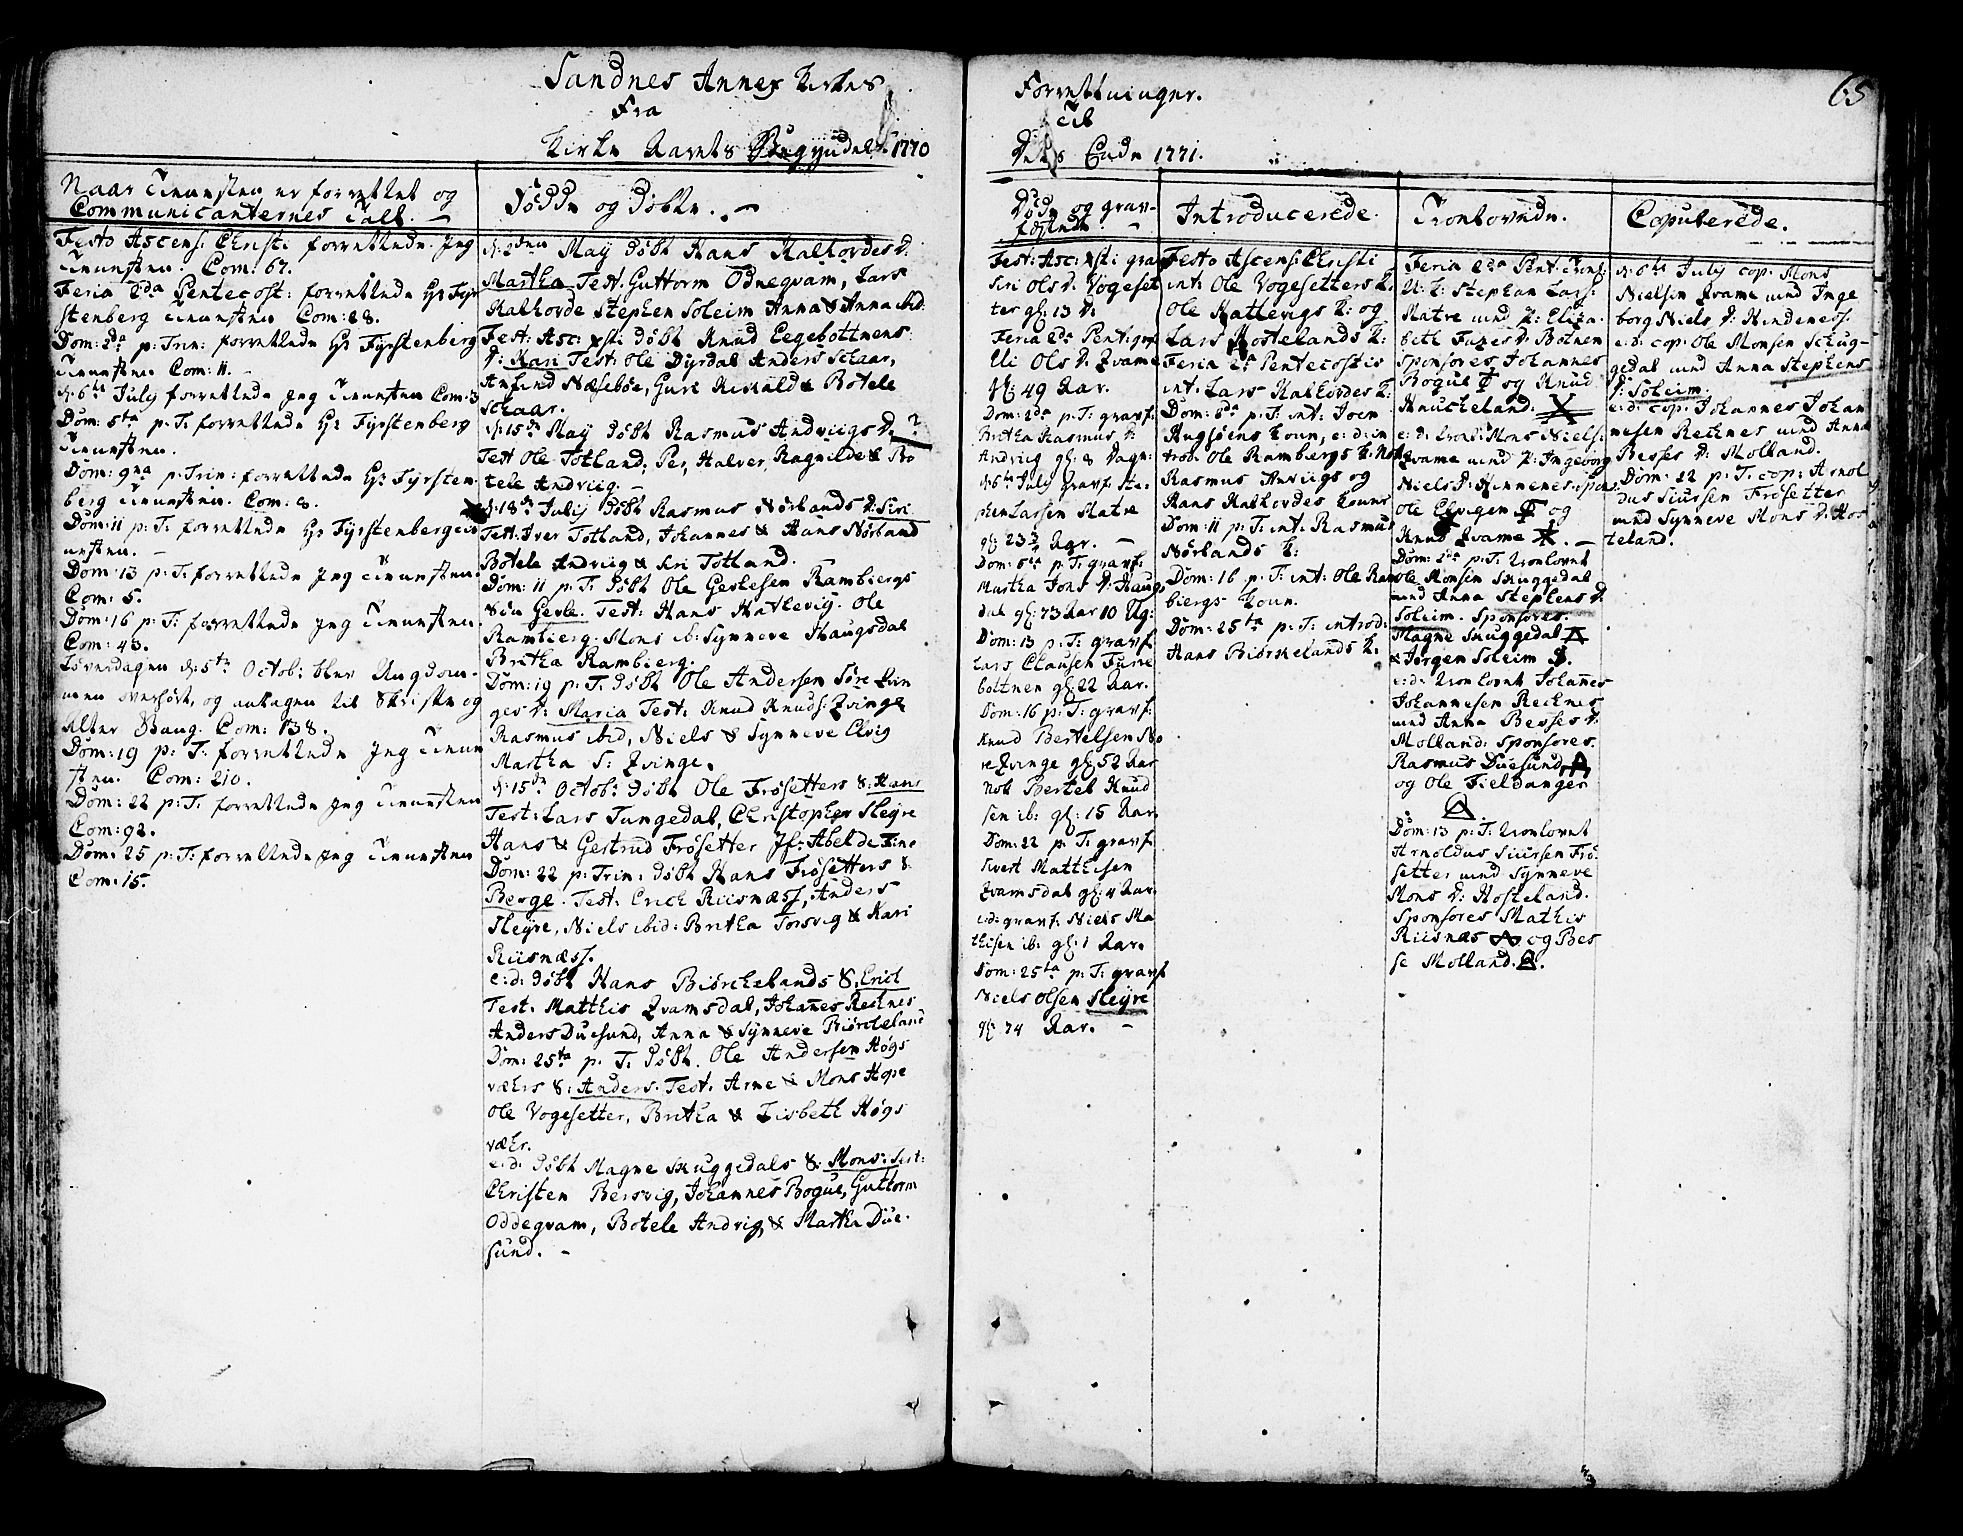 Sandnes Annex Kirkes
Fra
Kirke Aarets Begyndels. 1770
Naar Tienesten er forrettet og
Communicanternes Tall. –
Festo Ascens: Christi forrettede Jeg
Tienesten. Com: 67.
Feria 2da Pentecost: forrettede Hr Fyr
stenberg Tienesten Com: 28.
Dom: 2da p: Trin: forrettede Hr Fyrstenberg
Tienesten Com: 11. –
d: 6te July forrettede Jeg Tienesten Com: 3
Dom: 5ta p: T: forrettede Hr Fyrstenberg
Tienesten.
Dom: 9na p: Trin: forrettede Hr Fyrsten
berg Tienesten. Com: 8.
Dom: 11 p: T: forrettede Hr Fyrstenberg Ti
enesten. –
Dom: 13 p: T: forrettede Jeg Tienesten.
Com: 5.
Dom: 16 p: T: forrettede Jeg Tienesten.
Com: 43.
Løverdagen d: 5te Octob: blev Ungdom-
men overhørt, og antagen til Skrifte og
Alter Gang. Com: 138.
Dom: 19 p: T: forrettede Jeg Tiene
sten. Com: 210.
Dom: 22 p: T: forrettede Jeg Tienesten
Com: 92.
Dom: 25 p: T: forrettede Jeg Tienesten
Com: 15.
Fødde og Døbte. –
d: 2den Maij døbt Hans Kalhovdes D.
Martha Test. Guttorm Odneqvam, Lars
Kalhovde Stephen Soleim Anna & Anna ibid:
Fest: Asc: Xsti døbt Knud Eegebottnens
D: Kari Test: Ole Dyrdal Anders Schaar,
Anfind Næseboe, Guri & Botele
Schaar.
d: 15de Maij døbt Rasmus Andviigs D. ?
Test Ole Totland, Per, Halver, Ragnilde & Bo
tele Andviig. –
d: 18de Julij døbt Rasmus Nørlands D: Siri
Test: Iver Totland, Johannes & Hans Nørland
Botele Andviig & Siri Totland.
Dom: 11 p: T: døbt Ole Gerlesen Rambiergs
Søn Gerle. Test: Hans Hatlevig. Ole
Rambierg. Mons ib: Synneve Haugsdal
Britha Rambierg.
Dom: 19 p: T: døbt Ole Andersen Søre Qvin
ges D: Maria Test: Knud Knuds: Qvinge
Rasmus ibid, Niels & Synneve Elvig
Martha S: Qvinge.
d: 15de Octob: døbt Ole Frøsetters S: Hans
Test: Lars Tungedal, Christopher Sleyre
Hans & Gertrud Frøsetter Jf: Abel de Fine
Dom: 22 p: Trin: døbt Hans Frøsetters S
Berge. Test: Erick Riisnæss, Anders
Sleyre, Niels ibid: Britha Torsvig & Kari
Riisnæss.
e: d: døbt Hans Biørckelands S. Erick
Test: Matthis Qvamsdal, Johannes Recknes
Anders Duesund, Anna & Synneve Biørckeland
Dom: 25ta p: T: døbt. Ole Andersen Høgs
værs S: Anders. Test: Arne & Mons Hope
Ole Vogesetter, Britha & Lisbeth Høgs
vær.
e: d: døbt Magne Skuggedals S: Mons: Test:
Christen Bersvig, Johannes Bogue, Guttorm
Oddeqvam, Botele Andvig & Martha Due-
sund. –
Forrettninger.
Til
Dets Ende 1771.
65
Døde og grav-
fæstede. –
Fest: Asc: Xsti grav
Siri Ols D. Vogeset
ter gl: 13 D.
Feria 2da Pent: grf
Ols D. Qvame
gl: 49 Aar.
Dom: 2da p: T: gravf.
Britha Rasmus D.
Andviig gl: 8 Dage.
d: 6te July gravf. Ste-
phen Larsen Matre
gl: 23 3/4 Aar. –
Dom: 5ta p: T: gravf.
Martha Jons D: Haugs
dal gl: 73 Aar 10 Ug:
Dom: 13 p: T: gravf.
Lars Clausen Furre
bottnen gl: 22 Aar.
Dom: 16 p: T: gravf.
Knud Bertelsen No
re Qvinge gl: 52 Aar
nok Bertel Knud
sen ib: gl: 15 Aar.
Dom: 22 p: T: gravf.
Sivert Matthisen
Qvamsdal gl: 4 Aar.
e: d: gravf. Niels Ma
thisen ib: gl: 1 Aar.
Dom: 25ta p: T: gravf
Niels Olsen Sleyre
gl 74 Aar. –
Introducerede.
Festo Ascens: Christi
int: Ole Vogesetters K:
Ole Hatlevigs K: og
Lars Hostelands K:
Feria 2a Pentecostis
int: Lars Kalhovdes K:
Dom: 2da p: T: int: Joen
Augsøens Koun, e: d: in
trod: Ole Rambergs K: nok
Rasmus Anviigs og
Hans Kalhovdes Koner
Dom: 11 p: T: int: Rasmus
Nørlands K:
Dom: 16 p: T: int: Ole Ram
biergs Koun.
Dom: 25ta p: T: introd:
Hans Biørckelands K.
Trolovede.
Feria 2da Pent: trol:
U: K: Stephen Lars:
Matre med P: Eliza-
beth Fures D: Botnen
Sponsores Johannes
Bogue og Knud
Knucheland.
e: d: trol: Mons Niels:
Qvame med P: Ingeborg
Niels D: Hennenes: spons
Ole Elvigen og
Knud Qvame. –
Dom: 2da p: T: trolovet
Ole Monsen Skuggedal
med Anna Stephens D.
Soleim. Sponsores.
Magne Skuggedal
& Jørgen Soleim.
e: d: trolovet Johannes
Johannesen Recknes
med Anna Besses D.
Molland: Sponsores.
Rasmus Duesund,
og Ole Fieldanger
Dom: 13 p: T: trolovet
Arnoldus Siursen Frø-
setter med Synneve
Mons D: Hosteland.
Sponsores Mathis
Riisnæs og Bes
se Molland.
Copulerede.
d: 6te July cop: Mons
Nielsen Qvame med Inge
borg Niels D: Hindenes
e: d: cop: Ole Monsen Schug-
gedal med Anna Stephens
D: Soleim.
e: d: cop: Johannes Johan
nesen Recknes med Anna
Besses D: Molland.
Dom: 22 p: T: cop: Arnol
dus Siursen Frøsetter
med Synneve Mons D: Hos
teland.